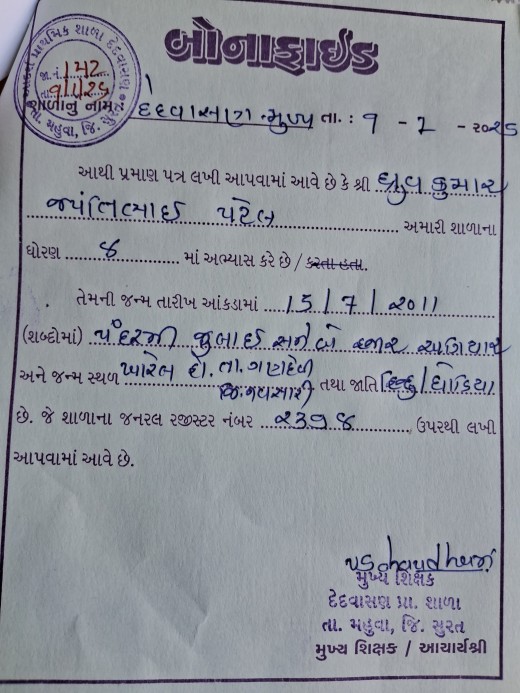 બોનાફાઈડ
પ્રાથમિક શાળા દેદવાસણ
જા.નં. 142
તા. મહુવા, જિ. સુરત
શાળાનું નામ દેદવાસણ મુખ્ય તા. : ૧ - ૭ - ૨૦૨૫
આથી પ્રમાણ પત્ર લખી આપવામાં આવે છે કે શ્રી ધ્રુવકુમાર
જયંતિભાઈ પટેલ અમારી શાળાના
ધોરણ ૪ માં અભ્યાસ કરે છે / કરતા હતા.
તેમની જન્મ તારીખ આંકડામાં 15 / 7 / ૨૦11
(શબ્દોમાં) પંદરમી જુલાઈ સને બે હજાર અગિયાર
અને જન્મ સ્થળ ખારેલ તા. ગણદેવી
જિ. નવસારી તથા જાતિ હિન્દુ / ધોડિયા
છે. જે શાળાના જનરલ રજીસ્ટર નંબર ૨૩૭૪ ઉપરથી લખી
આપવામાં આવે છે.
મુખ્ય શિક્ષક
દેદવાસણ પ્રા. શાળા
તા. મહુવા, જિ. સુરત
મુખ્ય શિક્ષક / આચાર્યશ્રી